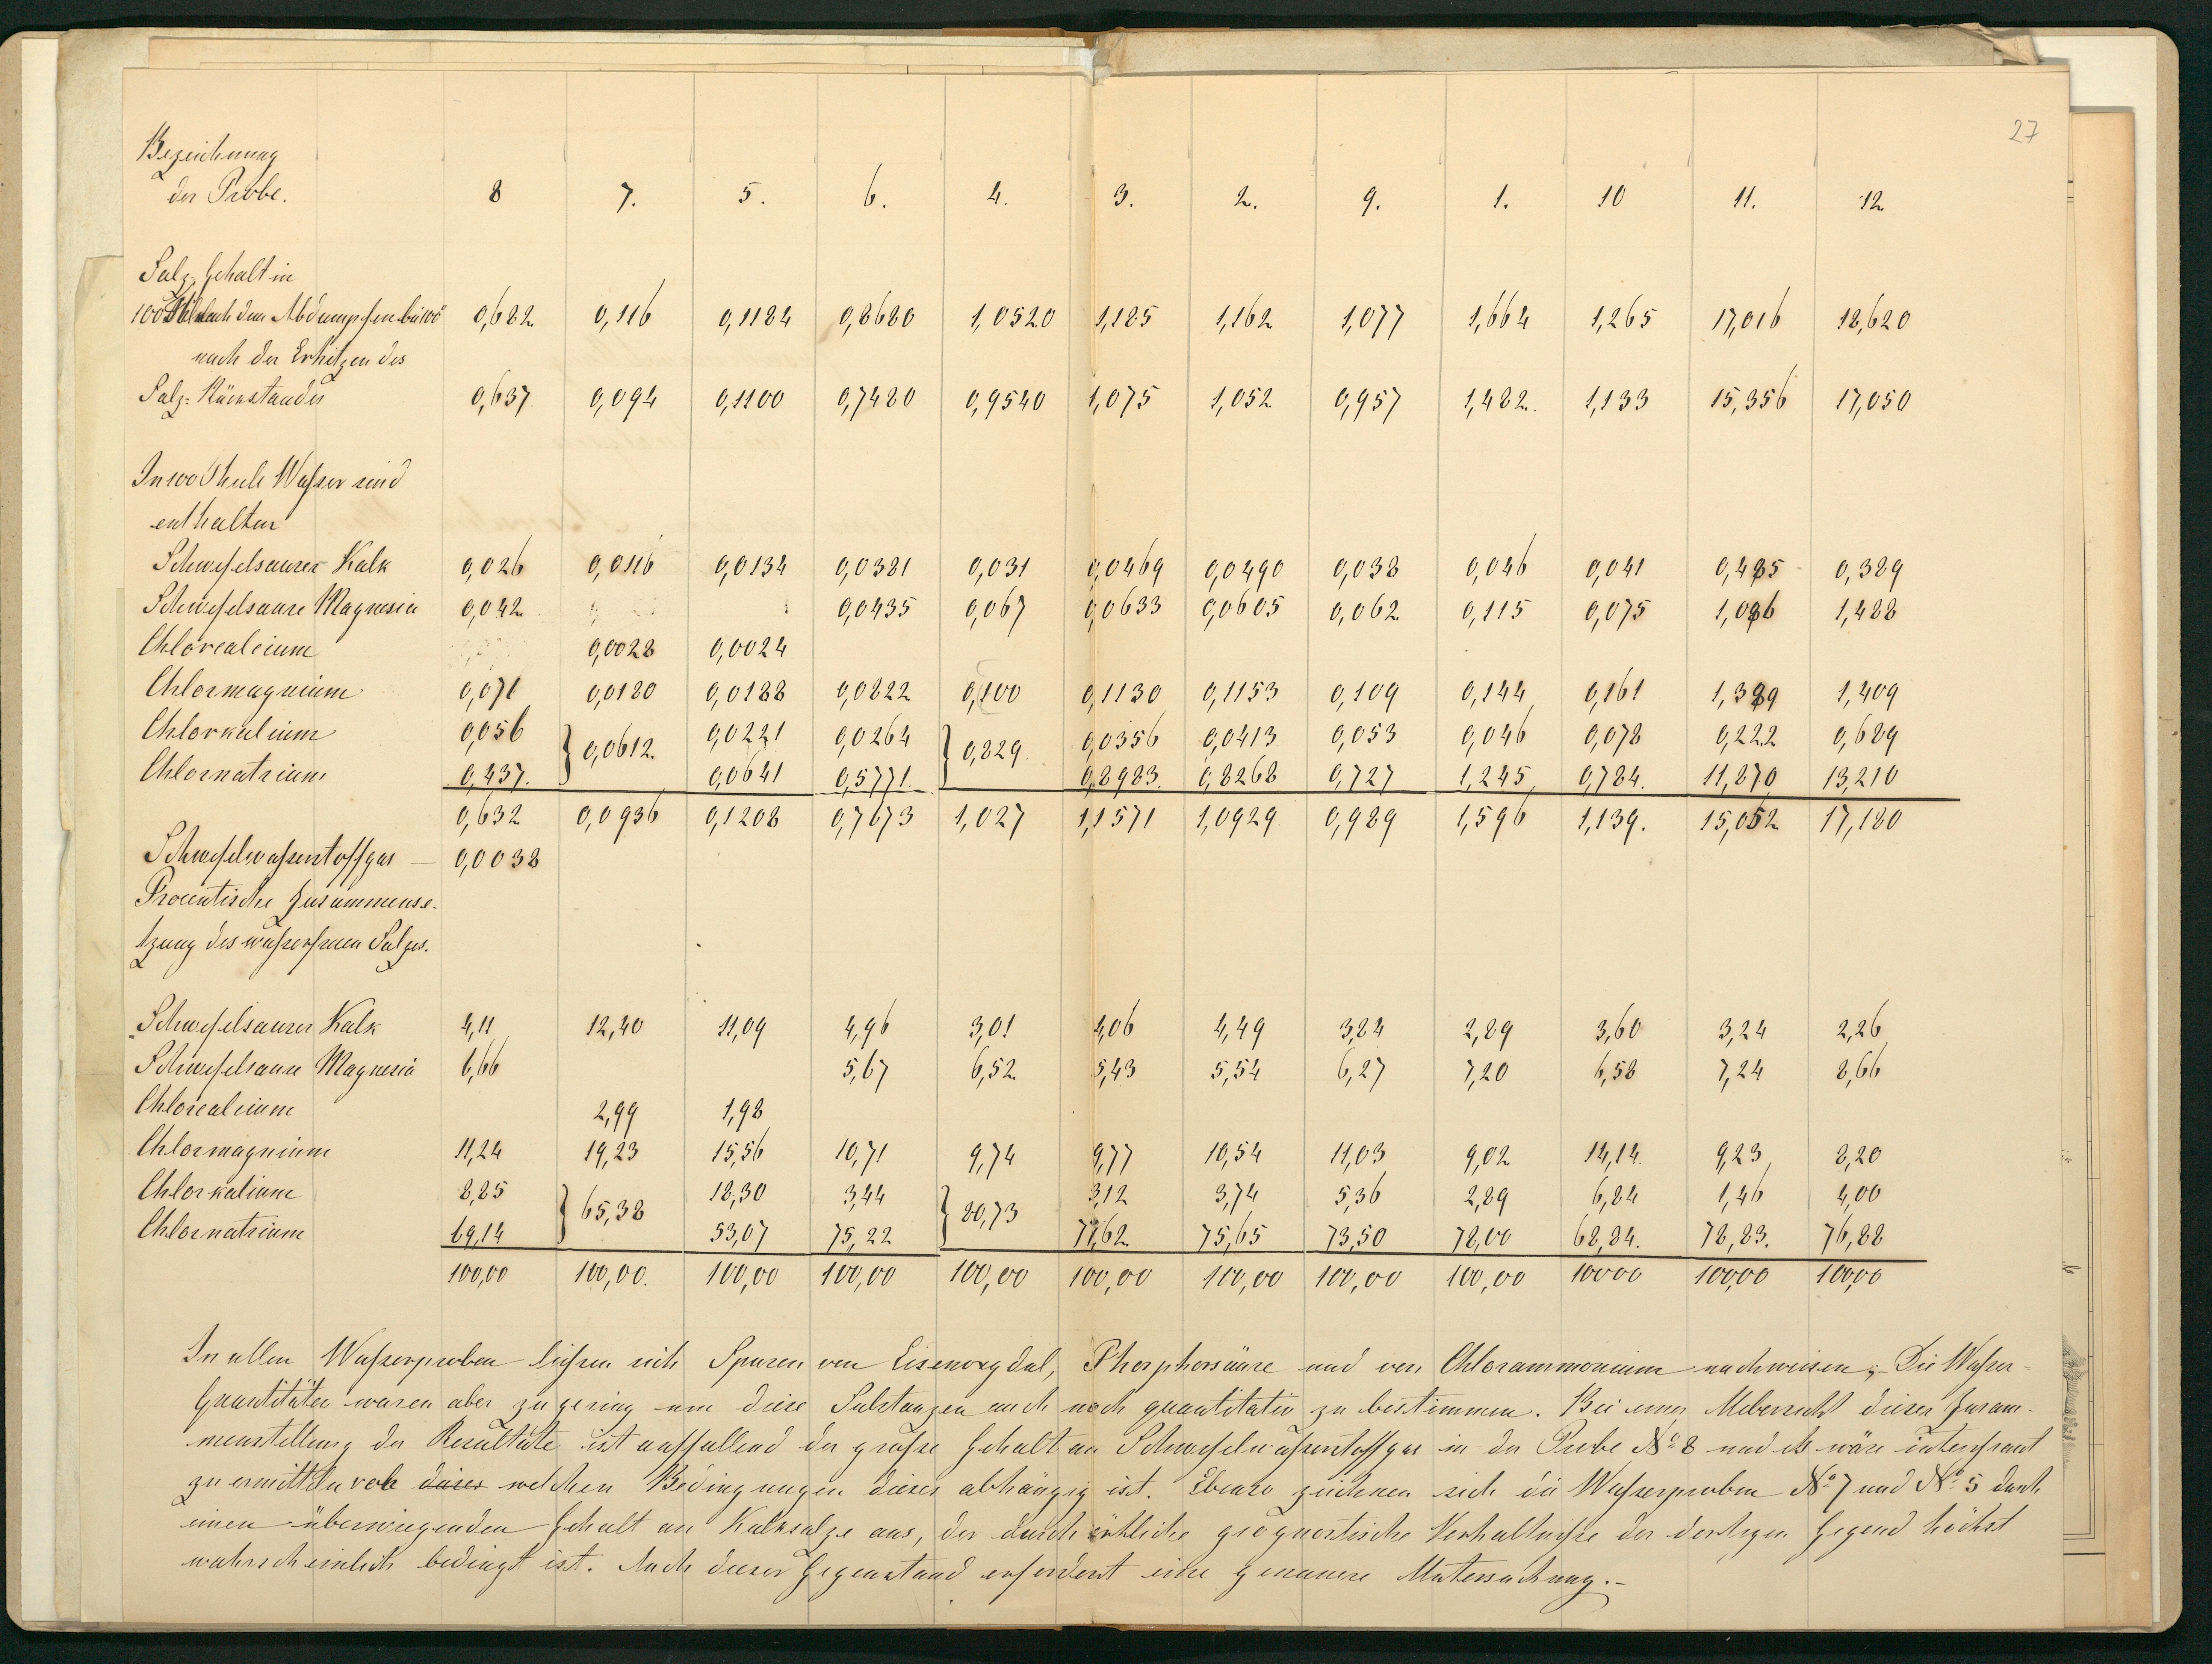 27
Bezeichnung
der Probe. 8 7. 5. 6. 4. 3. 2. 9. 1. 10 11. 12
Salz-Gehalt in
100 Thl. nach dem Abdampfen bei 100° 0,682 0,116 0,1184 0,8680 1,0520 1,185 1,162 1,077 1,664 1,265 17,016 18,620
nach der Erhitzen des
Salz-Rückstandes 0,637 0,094 0,1100 0,7480 0,9540 1,075 1,052 0,957 1,482. 1,133 15,356 17,050
In 100 Theile Waßer sind
enthalten
Schwefelsaurer Kalk 0,026 0,0116 0,0134 0,0381 0,031 0,0469 0,0490 0,038 0,046 0,041 0,485 0,389
Schwefelsaure Magnesia 0,042 0,0435 0,067 0,0633 0,0605 0,062 0,115 0,075 1,086 1,488
Chlorcalcium 0,0028 0,0024
Chlormagnium 0,071 0,0180 0,0188 0,0822 0,100 0,1130 0,1153 0,109 0,144 0,161 1,389 1,409
Chlorkalium 0,056 } 0,0612. 0,0221 0,0264 } 0,829 0,0356 0,0413 0,053 0,046 0,078 0,222 0,689
Chlornatrium 0,437. 0,0641 0,5771. 0,8983. 0,8268 0,727 1,245 0,784. 11,870 13,210
0,632 0,0936 0,1208 0,7673 1,027 1,1571 1,0929 0,989 1,596 1,139. 15,052 17,180
Schwefelwaßerstoffgas — 0,0038
Procentische Zusammense-
tzung des waßerfreien Salzes.
Schwefelsaurer Kalk 4,11 12,40 11,09 4,96 3,01 4,06 4,49 3,84 2,89 3,60 3,24 2,26
Schwefelsaure Magnesia 6,66 5,67 6,52 5,43 5,54 6,27 7,20 6,58 7,24 8,66
Chlorcalcium 2,99 1,98
Chlormagnium 11,24 19,23 15,56 10,71 9,74 9,77 10,54 11,03 9,02 14,14 9,23 8,20
Chlorkalium 8,85 } 65,38 18,30 3,44 } 80,73 3,12 3,74 5,36 2,89 6,84 1,46 4,00
Chlornatrium 69,14 53,07 75,22 77,62 75,65 73,50 78,00 68,84. 78,83. 76,88
100,00 100,00. 100,00 100,00 100,00 100,00 100,00 100,00 100,00 10000 100,00 100,00
In allen Waßerproben ließen sich Spuren von Eisenoxydul, Phosphorsäure und von Chlorammonium nachweisen; Die Waßer-
Quantitäten waren aber zu gering um diese Substanzen auch noch quantitativ zu bestimmen. Bei einer Uebersicht dieser Zusam-
menstellung der Resultate ist auffallend der große Gehalt an Schwefelwaßerstoffgas in der Probe No 8 und es wäre intereßant
zu ermitteln von dieses welchen Bedingungen dieses abhängig ist. Ebenso zeichnen sich die Waßerproben No 7 und No 5 durch
einen überwiegenden Gehalt an Kalksalze aus, der durch örtliche geognostische Verhältniße der dortigen Gegend höchst
wahrscheinlich bedingt ist. Auch dieser Gegenstand erfordert eine genauere Untersuchung.-